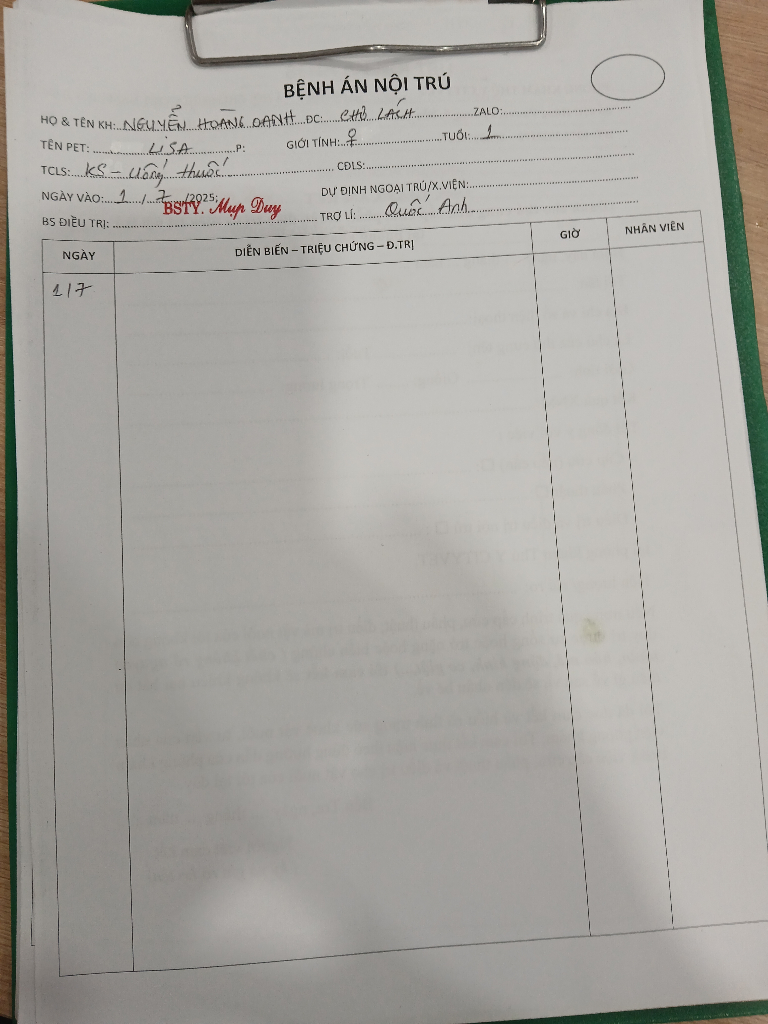 BỆNH ÁN NỘI TRÚ
HỌ & TÊN KH: NGUYỄN HOÀNG OANH ĐC: CHỢ LÁCH ZALO:
TÊN PET: LISA P: GIỚI TÍNH: ♀ TUỔI: 1
TCLS: KS - Uống thuốc CĐLS:
NGÀY VÀO: 1 / 7 /2025; DỰ ĐỊNH NGOẠI TRÚ/X.VIỆN:
BS ĐIỀU TRỊ: BSTY. Mup Duy TRỢ LÍ: Quốc Anh
NGÀY DIỄN BIẾN – TRIỆU CHỨNG – Đ.TRỊ GIỜ NHÂN VIÊN
1/7